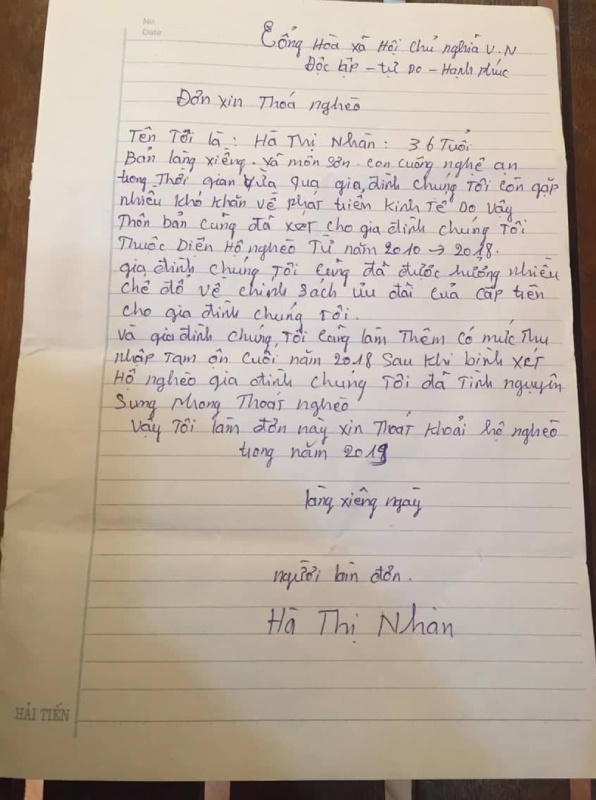 No.
Date
Cổng Hoà xã Hội Chủ nghĩa V.N
Độc lập - tự Do - Hạnh phúc
Đơn xin Thoá nghèo
Tên Tôi là : Hà Thị Nhàn : 36 Tuổi
Bản làng xiềng. xã môn sơn. con cuông nghệ an
trong Thời gian vừa qua gia đình chúng Tôi còn gặp
nhiều khó khăn về phát triển kinh Tế Do vậy
Thôn bản cũng đã xét cho gia đình chúng Tôi
Thuộc Diện Hộ nghèo Từ năm 2010 → 2018.
gia đình chúng Tôi cũng đã được hưởng nhiều
chế độ về chính sách ưu đãi của cấp trên
cho gia đình chúng Tôi.
và gia đình chúng Tôi cũng làm Thêm có mức Thu
nhập Tạm ổn cuối năm 2018 sau khi bình xét
Hộ nghèo gia đình chúng Tôi đã Tình nguyện
sung phong Thoát nghèo
vậy Tôi làm đơn này xin Thoát khoải hộ nghèo
trong năm 2019
làng xiềng ngày
người làn đơn.
Hà Thị Nhàn
HẢI TIẾN